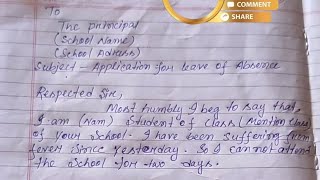 To
The principal
(School Name)
(School Adress)
Subject - Application for leave of Absence
Respected Sir,
Most humbly I beg to say that,
I am (Nam) Student of class (Mention class)
of your School. I have been suffering from
fever since yesterday. So I cannot attend
the School for two days.
COMMENT
SHARE